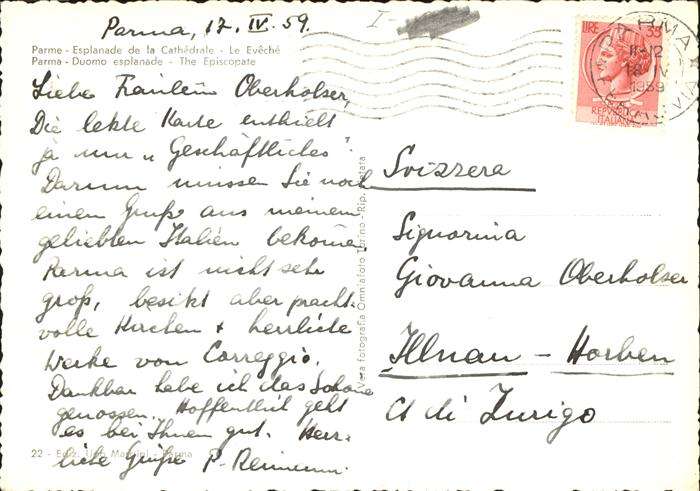 Parma, 17. IV. 59.
Parme - Esplanade de la Cathédrale - Le Evêché
Parma - Duomo esplanade - The Episcopate
Liebe Fräulein Oberholser,
Die letzte Karte enthielt
ja nur „Geschäftliches".
Darum müssen Sie noch
einen Gruß aus meinem
geliebten Italien bekomen.
Parma ist nicht sehr
groß, besitzt aber pracht-
volle Kirchen + herrliche
Werke von Correggio.
Dankbar habe ich das Schöne
genossen. Hoffentlich geht
es bei Ihnen gut. Herz-
liche Grüße P.
22 - Ediz.
Vera fotografia Omniafoto Torino - Rip. vietata
LIRE 35
REPUBBLICA
ITALIANA
PARMA
11-12
1959
Svizzera
Signorina
Giovanna Oberholser
Illnau - Horben
Ct di Zurigo